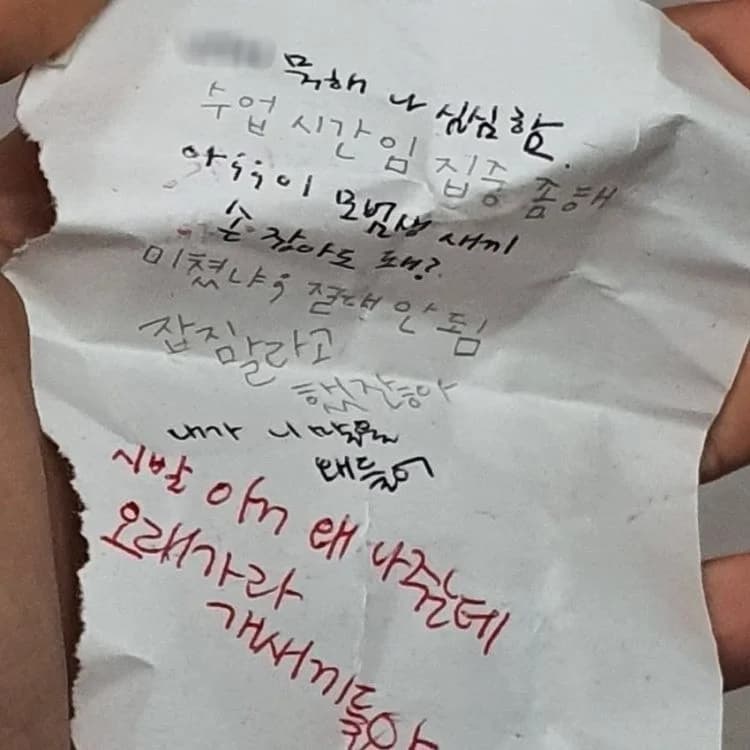 뭐해 나 심심함.
수업 시간임 집중 좀해
아 이 모범생 새끼
손 잡아도 돼?
미쳤냐 절대 안 됨
잡짐말라고
했잖아
내가 니 말을
왜들어
시발 아니 왜 나주는데
오래가라
개새끼들아